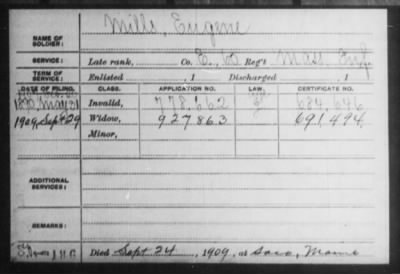 Mills, Eugene
NAME OF SOLDIER:
SERVICE: Late rank, Co. E, 6 Reg't Mass Inf.
TERM OF SERVICE: Enlisted , 1 Discharged , 1
DATE OF FILING. CLASS. APPLICATION NO. LAW. CERTIFICATE NO.
Invalid, 778,662 684,646
1909, Sept 29 Widow, 927863 691,494
Minor,
ADDITIONAL SERVICES:
REMARKS:
Died Sept 24, 1909, at Saco, Maine